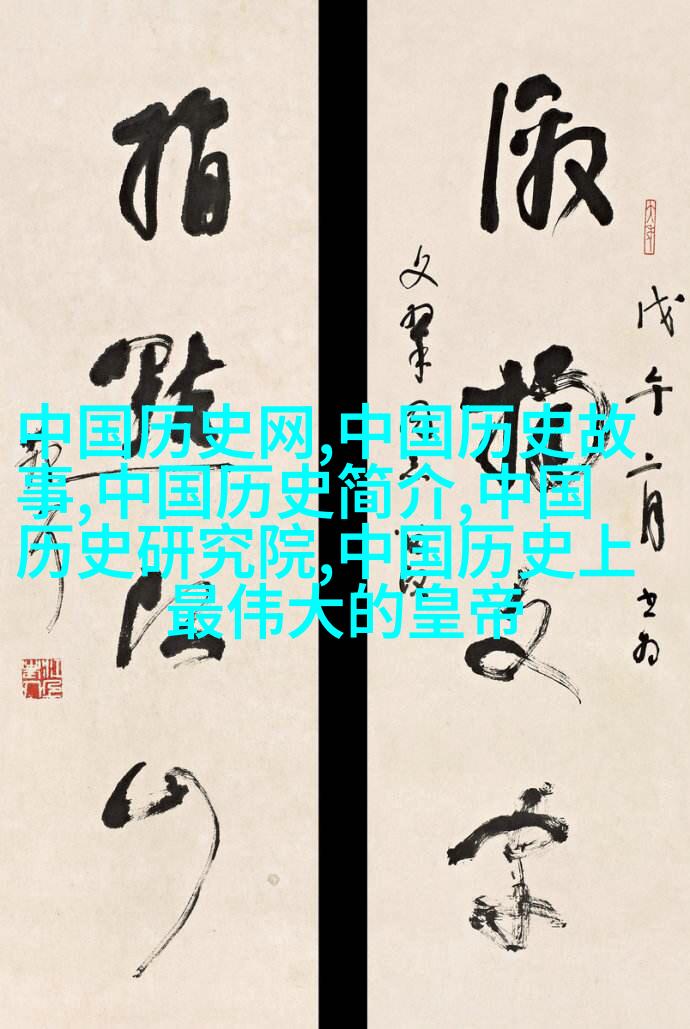 中国历史网,中国历史故
事,中国历史简介,中国
历史研究院,中国历史上
最伟大的皇帝
戊午二月书为
激揚文字
文翠
指點江山